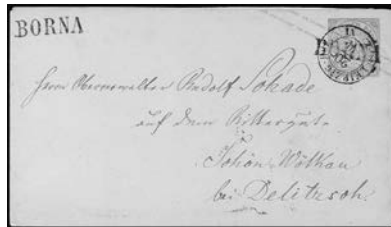 BORNA
Herrn Oberverwalter Rudolf Schade
auf dem Rittergute
Schön Wölkau
bei Delitzsch.